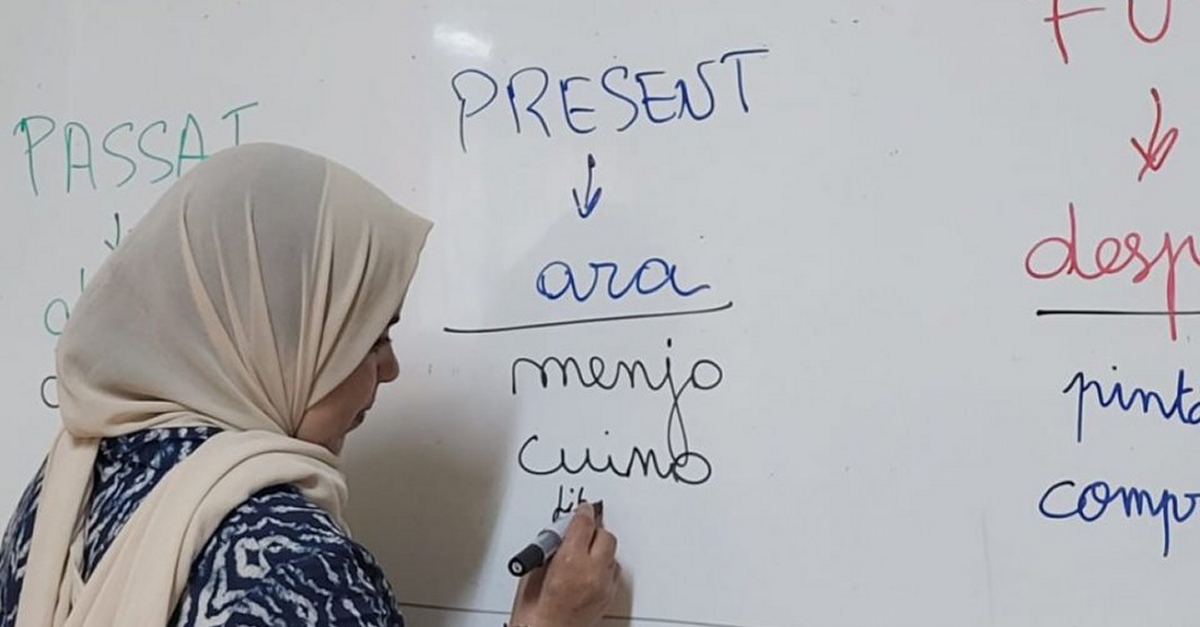 PASSAT
PRESENT
ara
menjo
cuino
FU
desp
pinta
comp